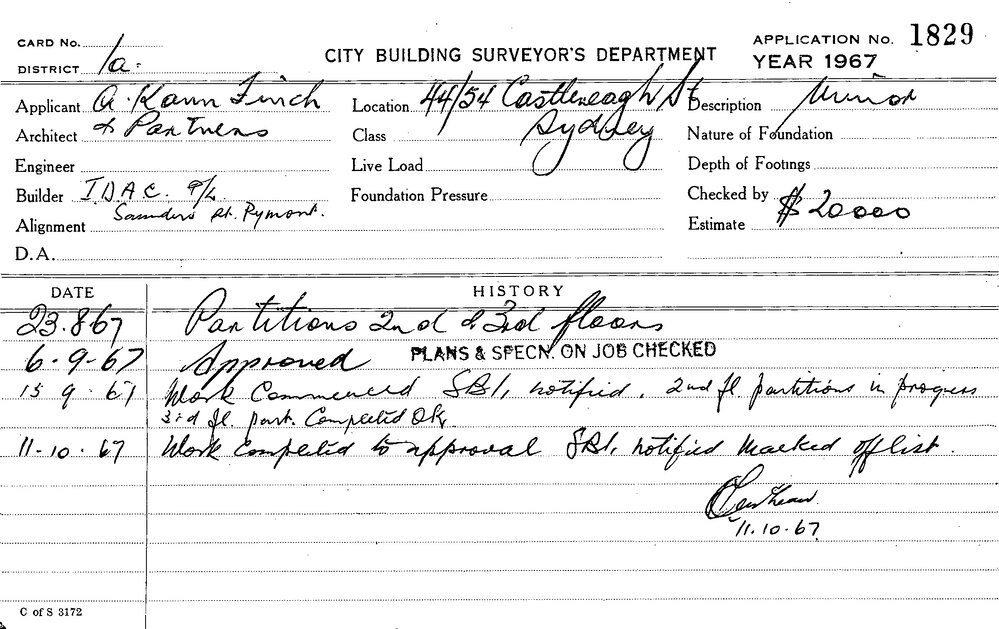 CARD No.
DISTRICT 1a.
CITY BUILDING SURVEYOR'S DEPARTMENT
APPLICATION No. 1829
YEAR 1967
Applicant A. Kann Finch
Architect & Partners
Engineer
Builder I.D.A.C. P/L.
Saunders St. Pyrmont.
Alignment
D.A.
Location 44/54 Castlereagh St
Class Sydney
Live Load
Foundation Pressure
Description Minor
Nature of Foundation
Depth of Footings
Checked by
Estimate $20000
DATE HISTORY
23.8.67 Partitions 2nd & 3rd floors
6-9-67 Approved PLANS & SPECN. ON JOB CHECKED
15 9.67 Work Commenced SBI, notified. 2nd fl partitions in progress
3rd fl. part. Completed OK.
11-10-67 Work completed to approval SBI, notified Marked off list.
11.10.67
C of S 3172